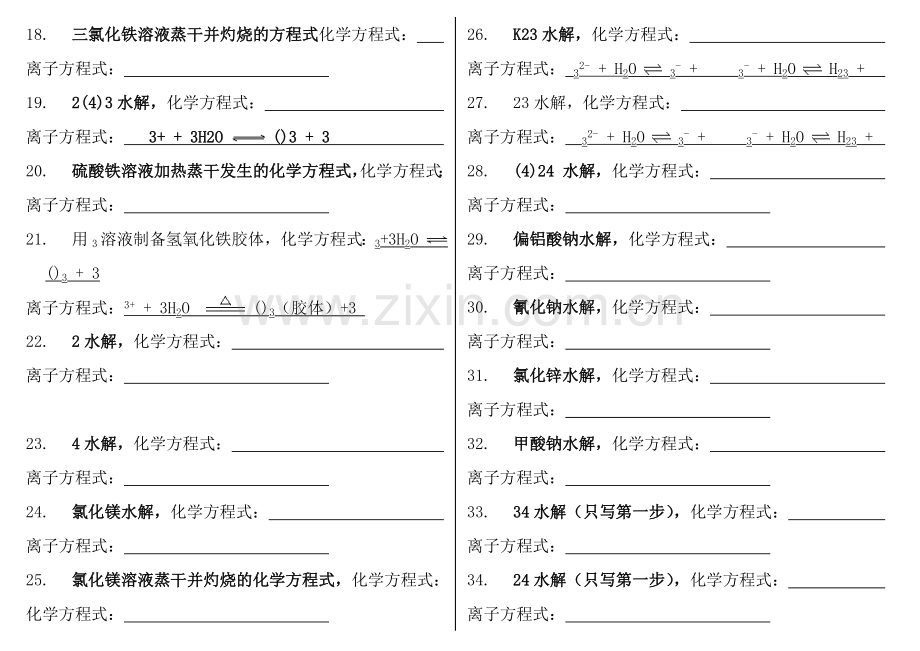 18. 三氯化铁溶液蒸干并灼烧的方程式化学方程式：
离子方程式：
19. 2(4)3水解，化学方程式：
离子方程式： 3+ + 3H2O ⇌ ()3 + 3
20. 硫酸铁溶液加热蒸干发生的化学方程式，化学方程式
离子方程式：
21. 用₃溶液制备氢氧化铁胶体，化学方程式：₃+3H₂O ⇌
()₃ + 3
离子方程式：³⁺ + 3H₂O △ ()₃（胶体）+3
22. 2水解，化学方程式：
离子方程式：
23. 4水解，化学方程式：
离子方程式：
24. 氯化镁水解，化学方程式：
离子方程式：
25. 氯化镁溶液蒸干并灼烧的化学方程式，化学方程式：
化学方程式：
26. K23水解，化学方程式：
离子方程式： ₃²⁻ + H₂O ⇌ ₃⁻ + ₃⁻ + H₂O ⇌ H₂₃ +
27. 23水解，化学方程式：
离子方程式： ₃²⁻ + H₂O ⇌ ₃⁻ + ₃⁻ + H₂O ⇌ H₂₃ +
28. (4)24 水解，化学方程式：
离子方程式：
29. 偏铝酸钠水解，化学方程式：
离子方程式：
30. 氰化钠水解，化学方程式：
离子方程式：
31. 氯化锌水解，化学方程式：
离子方程式：
32. 甲酸钠水解，化学方程式：
离子方程式：
33. 34水解（只写第一步），化学方程式：
离子方程式：
34. 24水解（只写第一步），化学方程式：
离子方程式：
www.zixin.com.cn